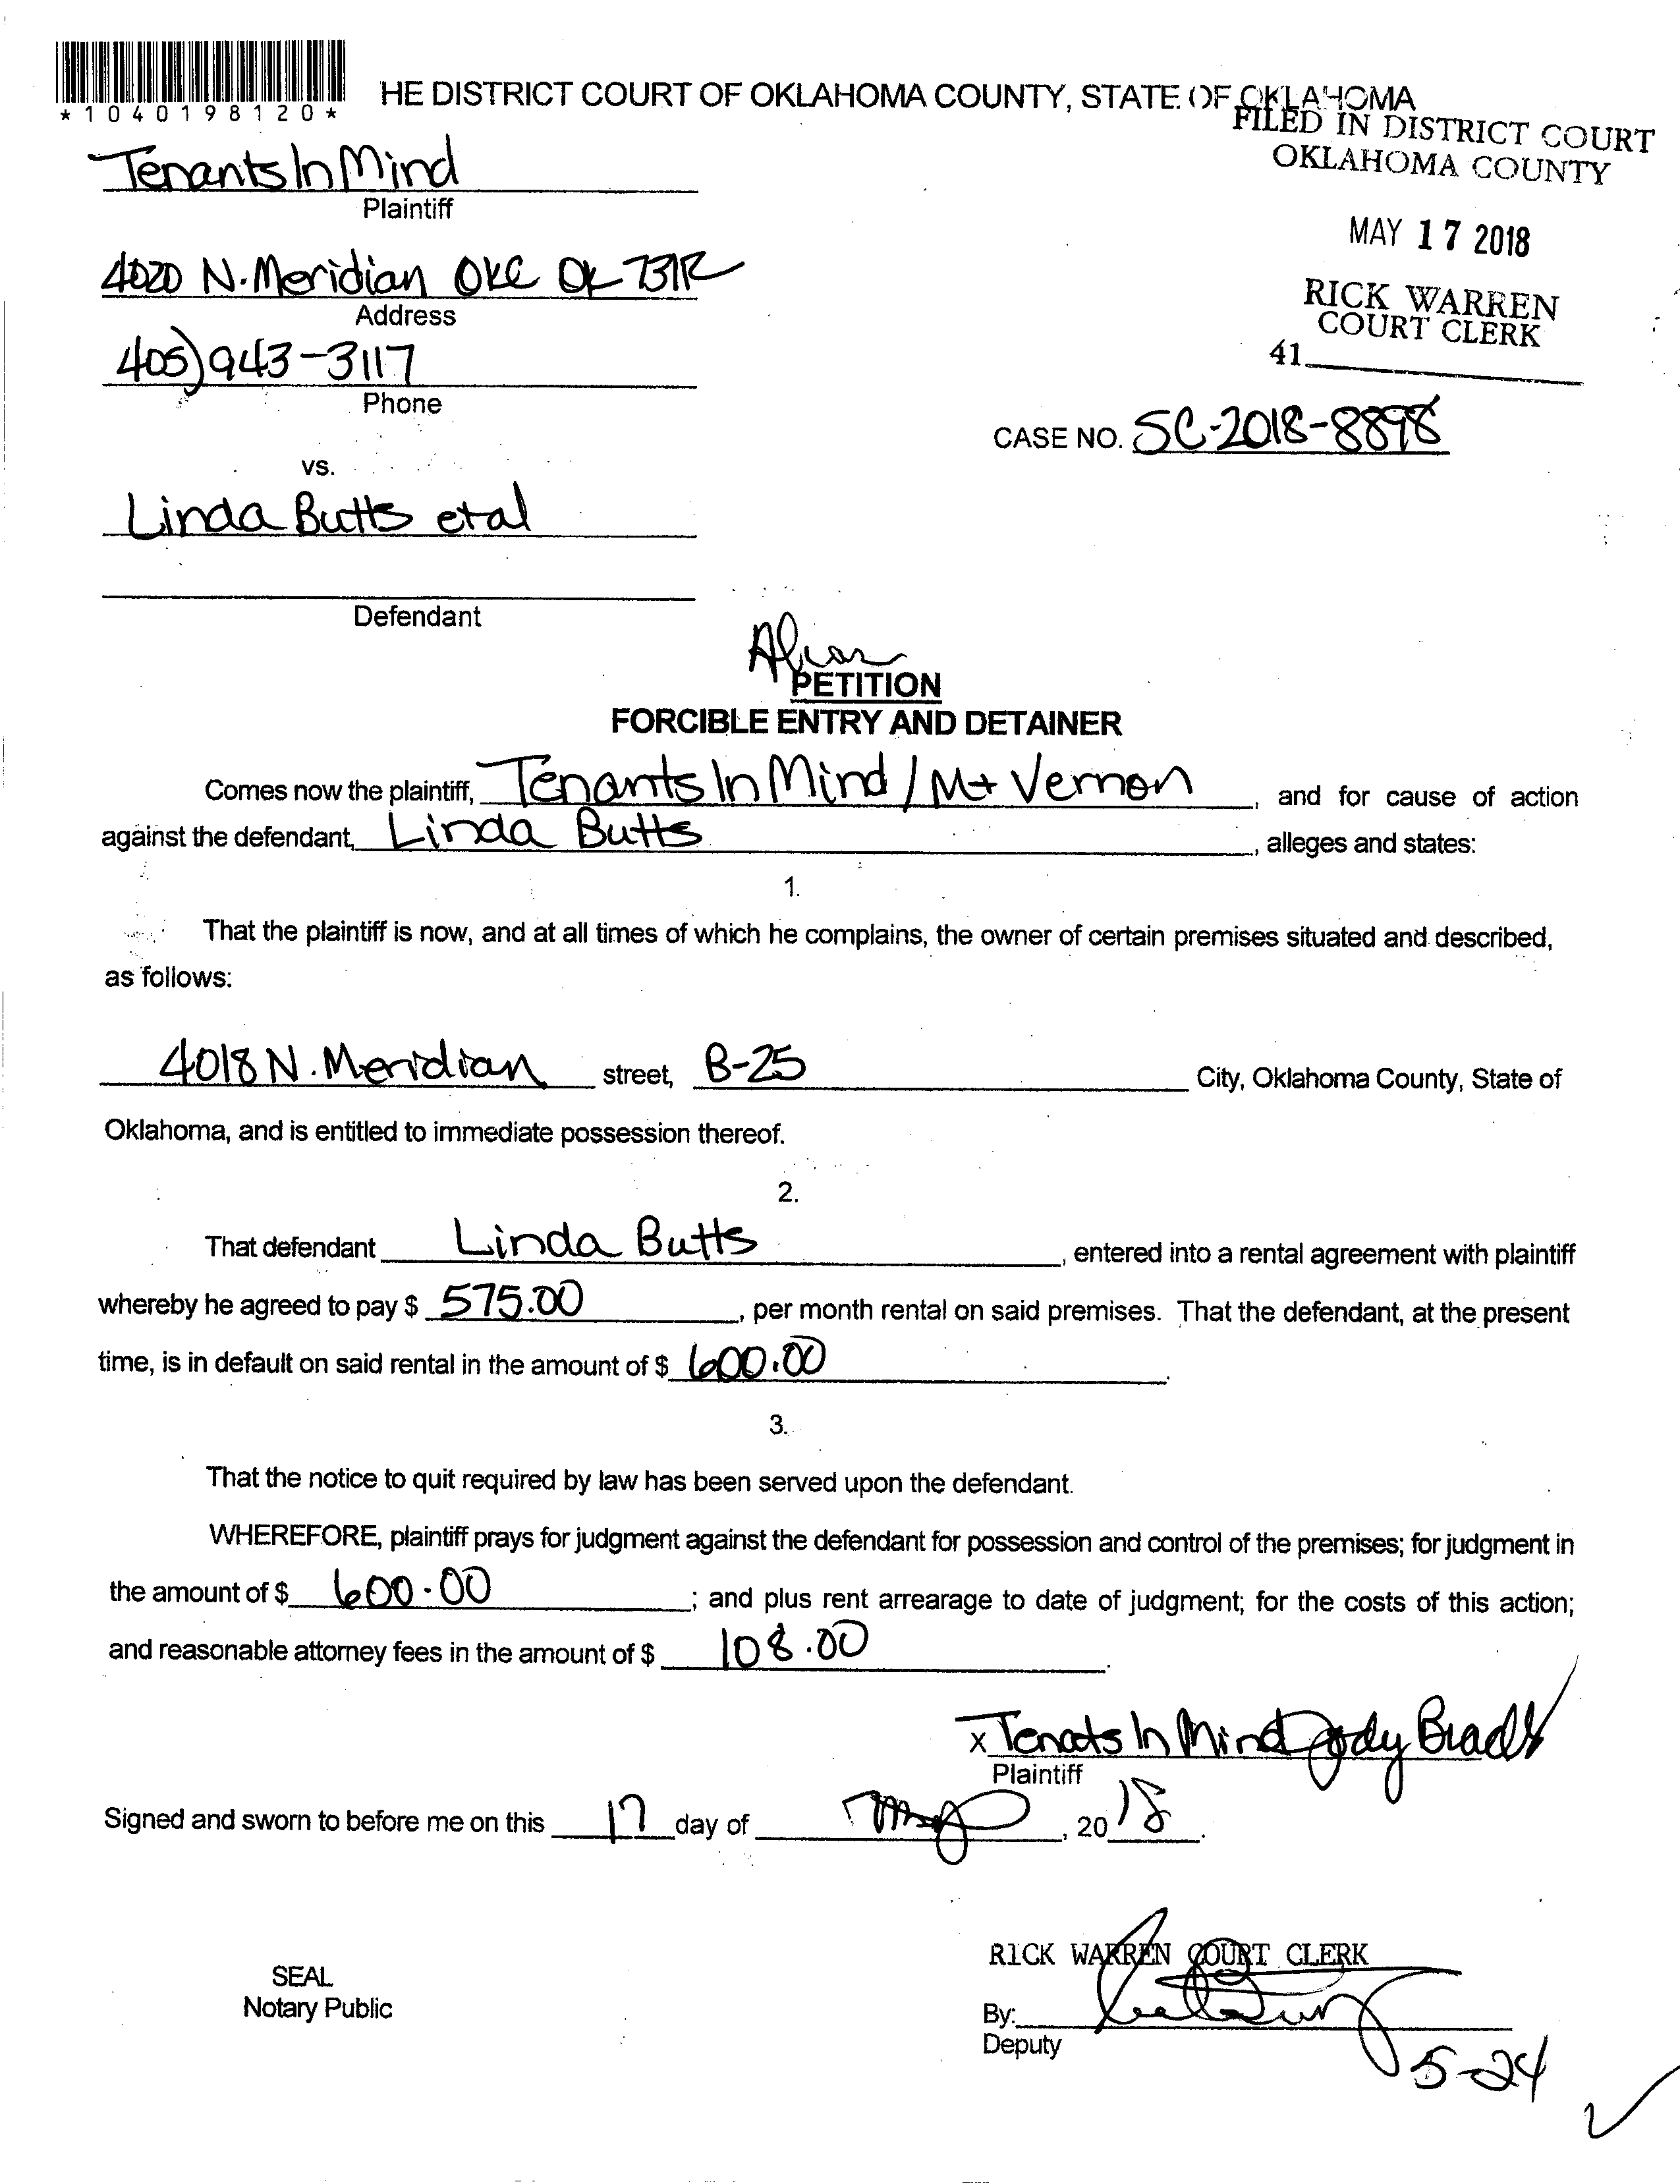 *1040198120*
HE DISTRICT COURT OF OKLAHOMA COUNTY, STATE OF OKLAHOMA
FILED IN DISTRICT COURT
OKLAHOMA COUNTY
MAY 17 2018
RICK WARREN
COURT CLERK
41
Tenants In Mind
Plaintiff
4020 N. Meridian OKC OK 73112
Address
405) 943-3117
Phone
CASE NO. SC-2018-8898
vs.
Linda Butts etal
Defendant
Alias
PETITION
FORCIBLE ENTRY AND DETAINER
Comes now the plaintiff, Tenants In Mind / Mt Vernon, and for cause of action
against the defendant, Linda Butts, alleges and states:
1.
That the plaintiff is now, and at all times of which he complains, the owner of certain premises situated and described,
as follows:
4018 N. Meridian street, B-25 City, Oklahoma County, State of
Oklahoma, and is entitled to immediate possession thereof.
2.
That defendant Linda Butts, entered into a rental agreement with plaintiff
whereby he agreed to pay $ 575.00, per month rental on said premises. That the defendant, at the present
time, is in default on said rental in the amount of $ 600.00.
3.
That the notice to quit required by law has been served upon the defendant.
WHEREFORE, plaintiff prays for judgment against the defendant for possession and control of the premises; for judgment in
the amount of $ 600.00; and plus rent arrearage to date of judgment; for the costs of this action;
and reasonable attorney fees in the amount of $ 108.00.
x Tenats In Mind Jody
Plaintiff
Signed and sworn to before me on this 17 day of May, 2018.
RICK WARREN COURT CLERK
SEAL
Notary Public
By:
Deputy
5-24